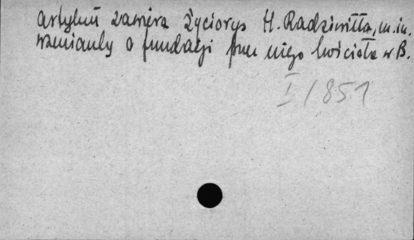 artykuł zawiera życiorys H. Radziwiłła, m.in.
wzmianki o fundacji przez niego kościoła w B.
I/851